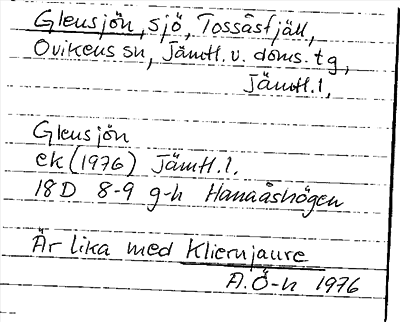 Glensjön, sjö, Tossåsfjäll,
Ovikens sn, Jämtl. v. doms. tg,
Jämtl. l,
Glensjön
ek (1976) Jämtl. l.
18D 8-9 g-h Hanaåshögen
Är lika med Kliernjaure
A.Ö-n 1976